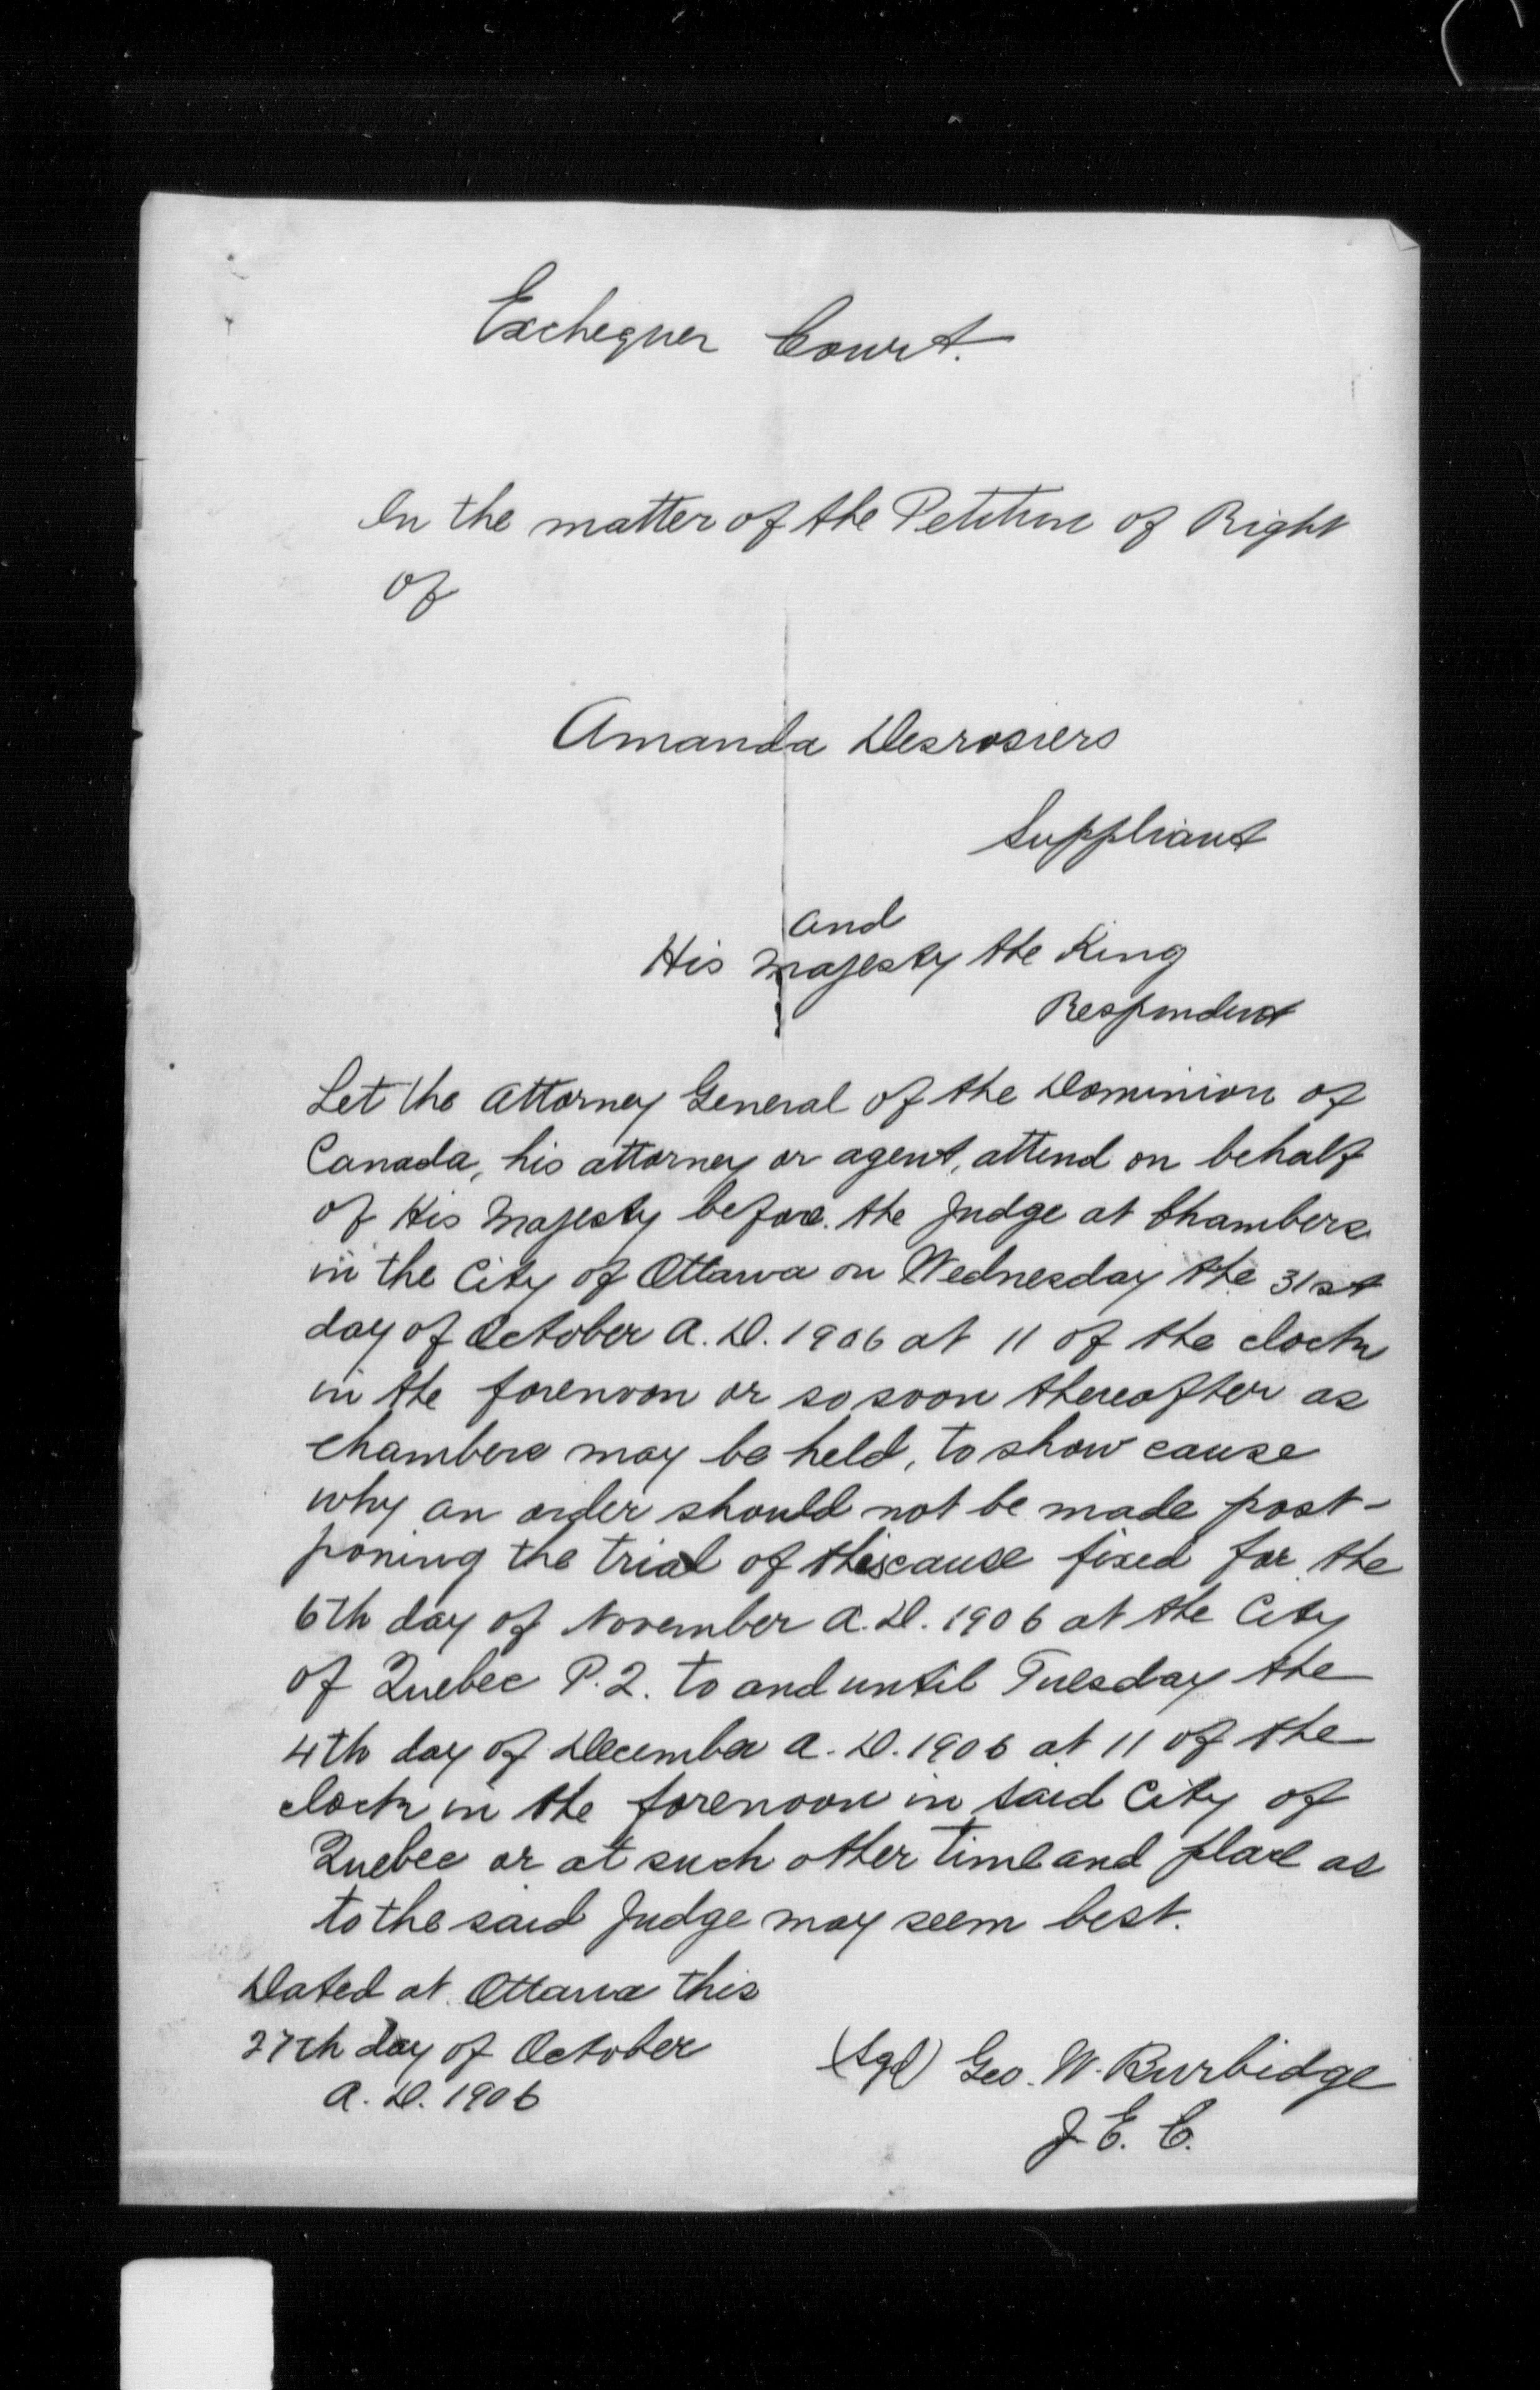 Exchequer Court.
In the matter of the Petition of Right
of
Amanda Desrosiers
Suppliant
and
His Majesty the King
Respondent
Let the Attorney General of the Dominion of
Canada, his attorney or agent, attend on behalf
of His Majesty before the Judge at Chambers
in the City of Ottawa on Wednesday the 31st
day of October A.D. 1906 at 11 of the clock
in the forenoon or so soon thereafter as
chambers may be held, to show cause
why an order should not be made post-
poning the trial of this cause fixed for the
6th day of November A.D. 1906 at the City
of Quebec P.Q. to and until Tuesday the
4th day of December A.D. 1906 at 11 of the
clock in the forenoon in said City of
Quebec or at such other time and place as
to the said Judge may seem best.
Dated at Ottawa this
27th day of October
A.D. 1906
(Sgd) Geo. W. Burbidge
J. E. C.